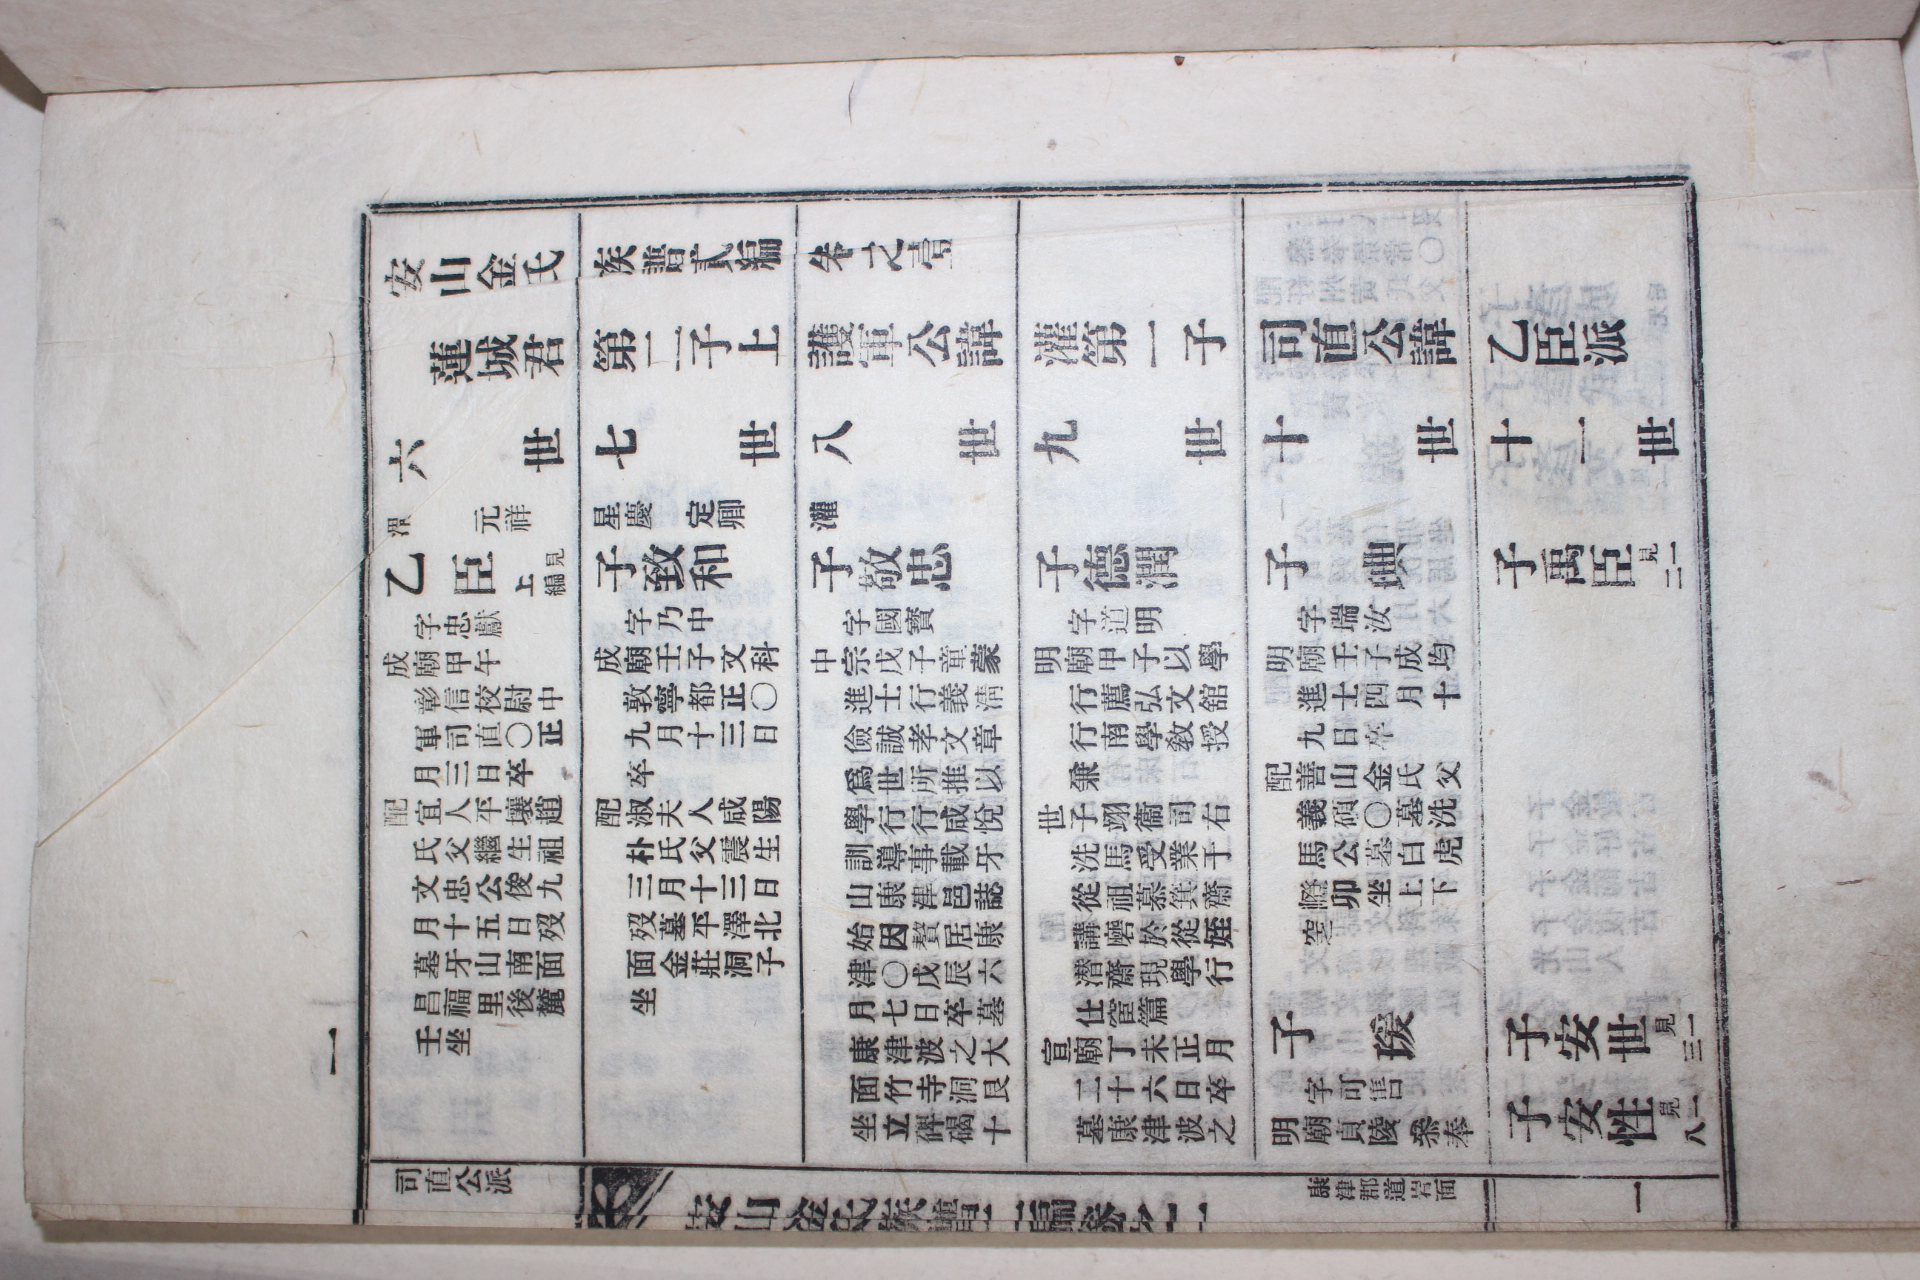 一
安山金氏族譜貳編 卷之壹
蓮城君第二子上護軍公諱灌第一子司直公諱乙臣派
六世
七世
八世
九世
十世
十一世
渭 元祥
乙臣 見上編
字忠獻
成廟甲午
彰信校尉中
軍司直〇正
月三日卒
配宜人平壤趙
氏父繼生祖
文忠公俊九
月十五日歿
墓牙山南面
昌福里後麓
壬坐
星慶 定卿
子致和
字乃中
成廟壬子文科
敦寧都正〇
九月十三日
卒
配淑夫人咸陽
朴氏父震生
三月十三日
歿墓平澤北
面金莊洞子
坐
灌
子敬忠
字國寶
中宗戊子童蒙
進士行義淸
儉誠孝文章
爲世所推以
學行行咸悅
訓導事載牙
山康津邑誌
始因贅居康
津〇戊辰六
月七日卒墓
康津波之大
面竹寺洞艮
坐立碑碣十
子德潤
字道明
明廟甲子以學
行薦弘文舘
行南學敎授
兼
世子翊衞司右
洗馬受業于
從祖慕箕齋
講磨於從姪
潛齋現學行
仕宦篇
宣廟丁未正月
二十六日卒
墓康津波之
子㻴
字瑞汝
明廟壬子成均
進士四月十
九日卒
配善山金氏父
義碩〇墓洗
馬公墓白虎
嶝卯坐上下
窆
子瑗
字可售
明廟貞陵叅奉
子禹臣 見一二
子安世 見一三
子安性 見一八
司直公派
安山金氏族譜二編卷之一
康津郡道岩面
一